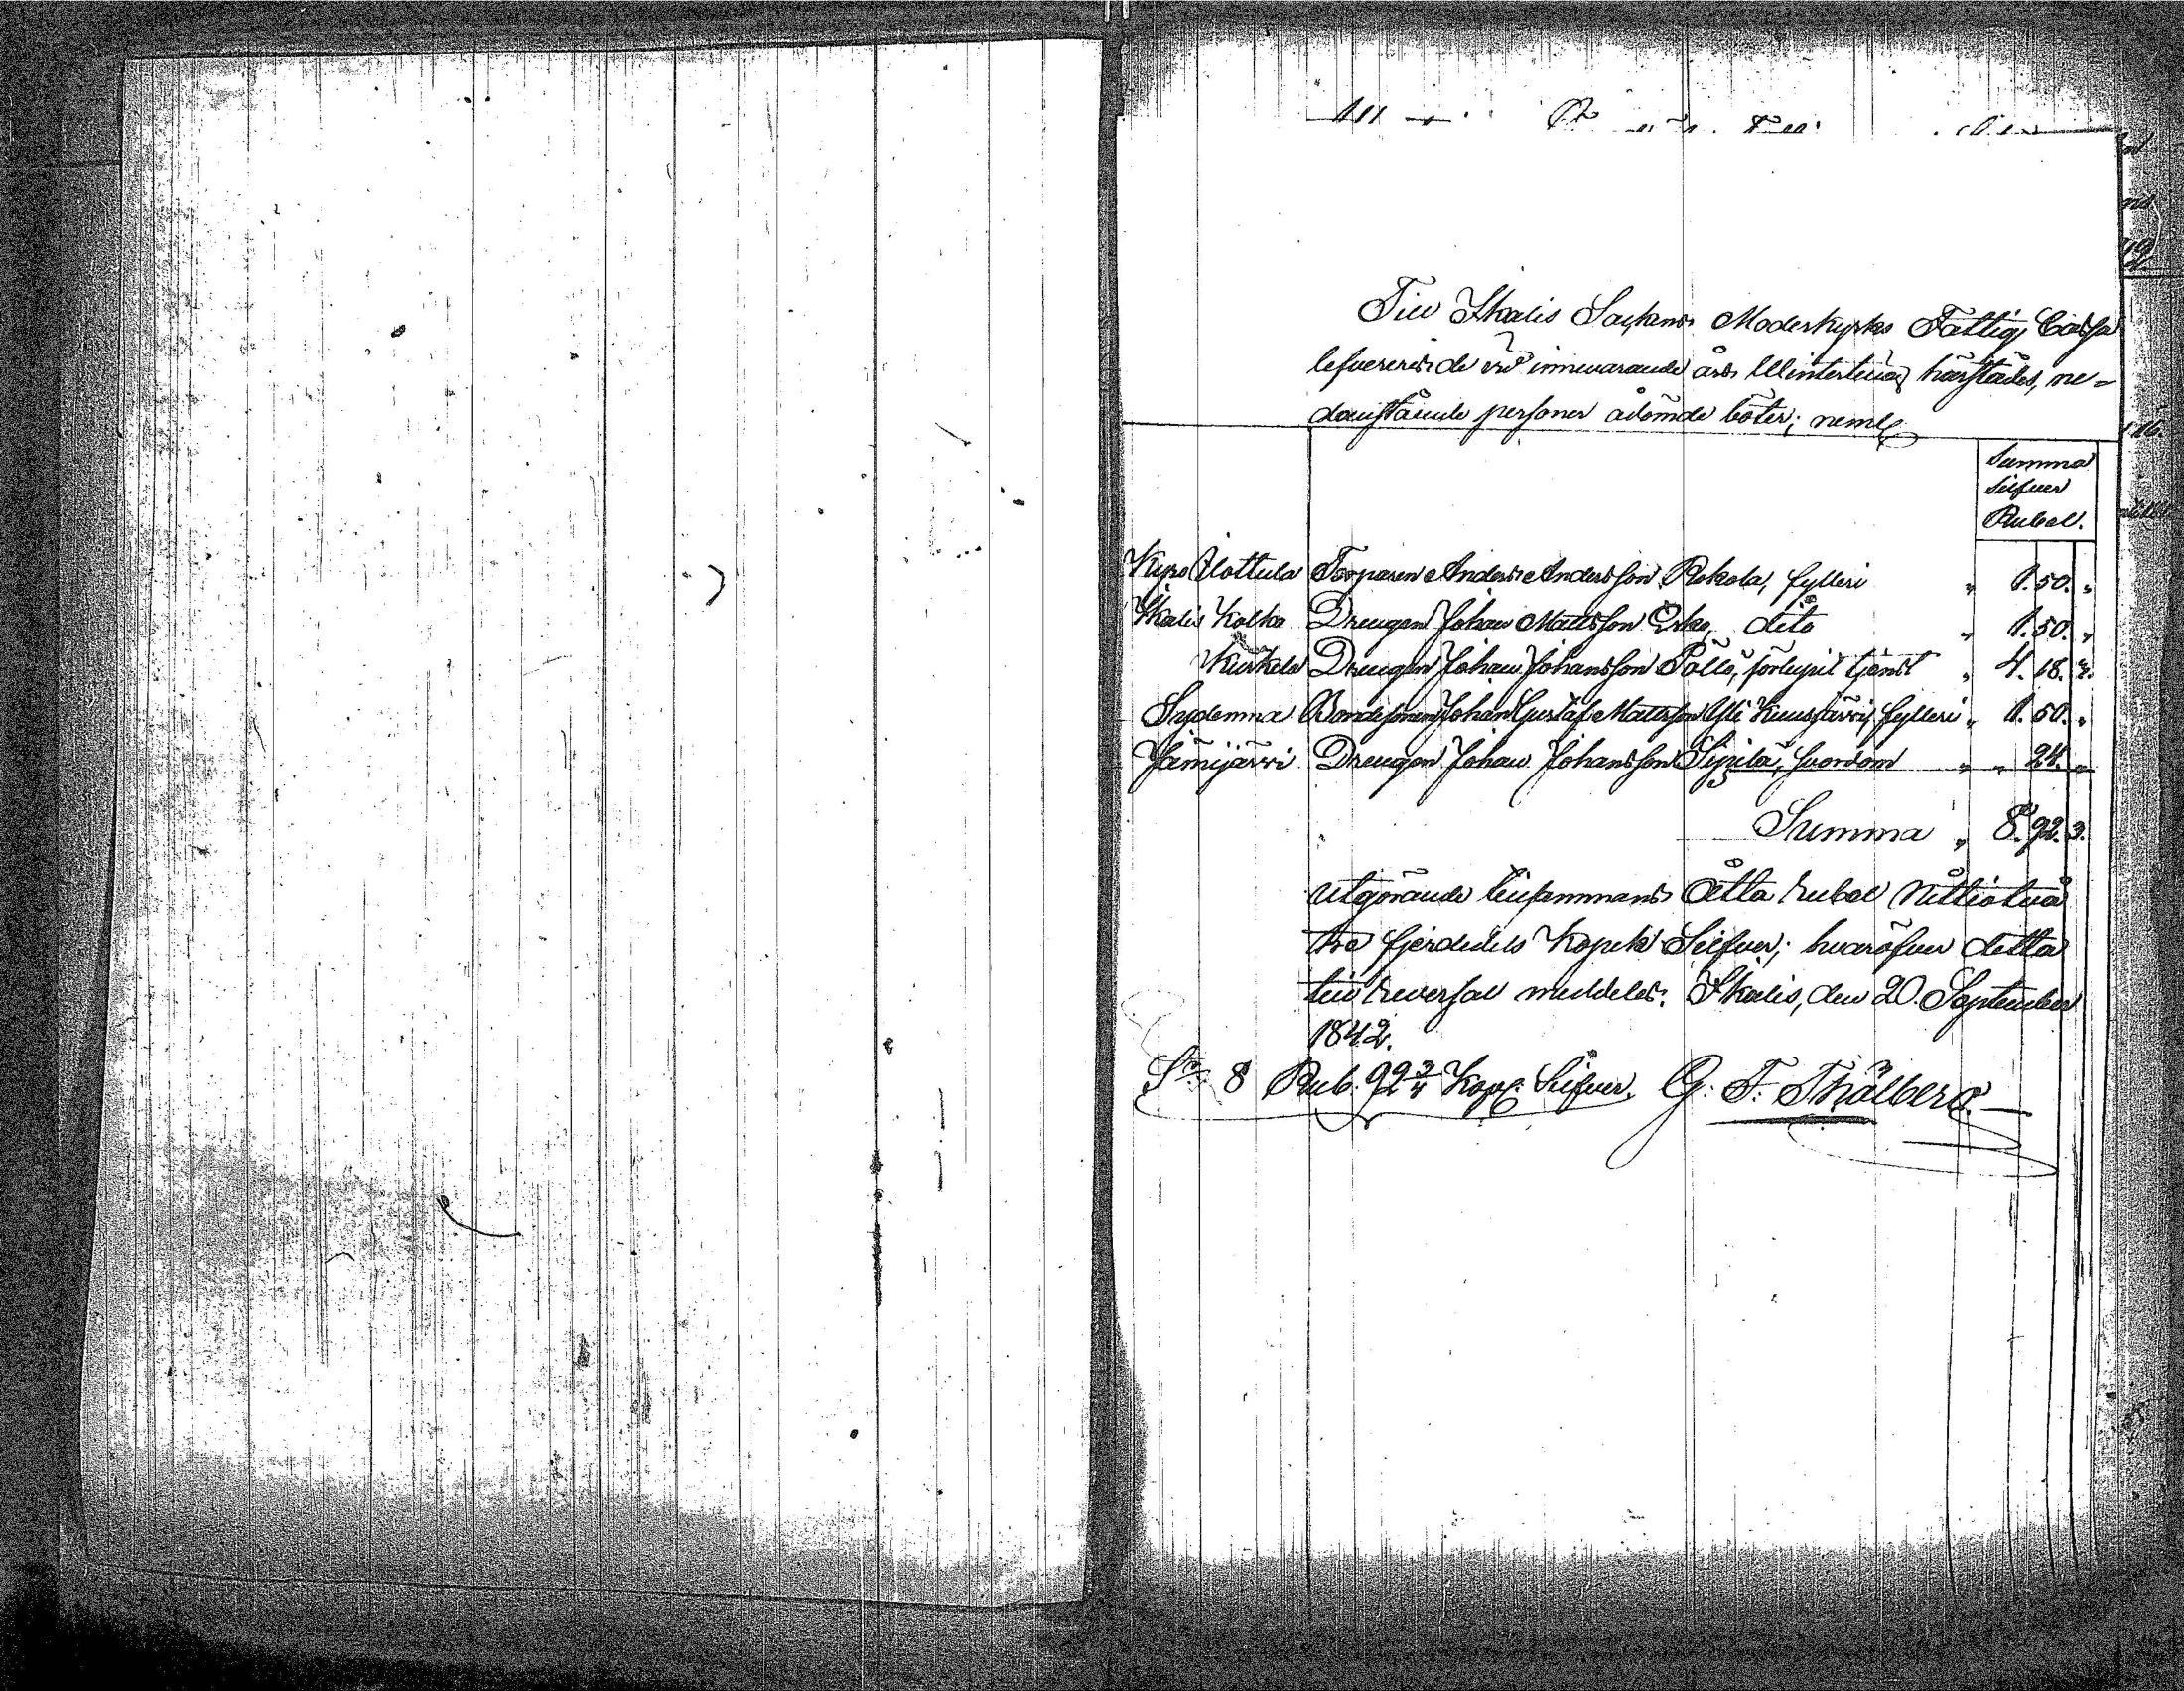 Till Ikalis Sockens Moderkyrko Fattig Cassa
lefvereres de vid innevarande års Winterting härstädes, ne-
danstående personer ådömde böter; neml.
Summa
Silfver
Rubel.
Kyro Flottula Torparen Anders Andersson Rokola, fylleri " 1. 50. "
Ikalis Kolko Drengen Johan Mattsson Erko, dito " 1. 50. "
Kurkela Drengen Johan Johansson Pållo, förlupit tjenst " 4. 18. 3.
Sydenmaa Bondesonen Johan Gustaf Mattsson Yli Kuusjärvi, fylleri " 1. 50. "
Jämijärvi Drengen Johan Johansson Sipilä, hordom " " 24. "
Summa " 8. 92. 3.
utgörande tillsammans Åtta rubel Nittiotvå
tre fjerdedels Kopek Silfver; hvaröfver detta
till reversal meddelas. Ikalis, den 20 September
1842.
S:a 8 Rub. 92 3/4 Kop. Silfver. G. F. Thålberg